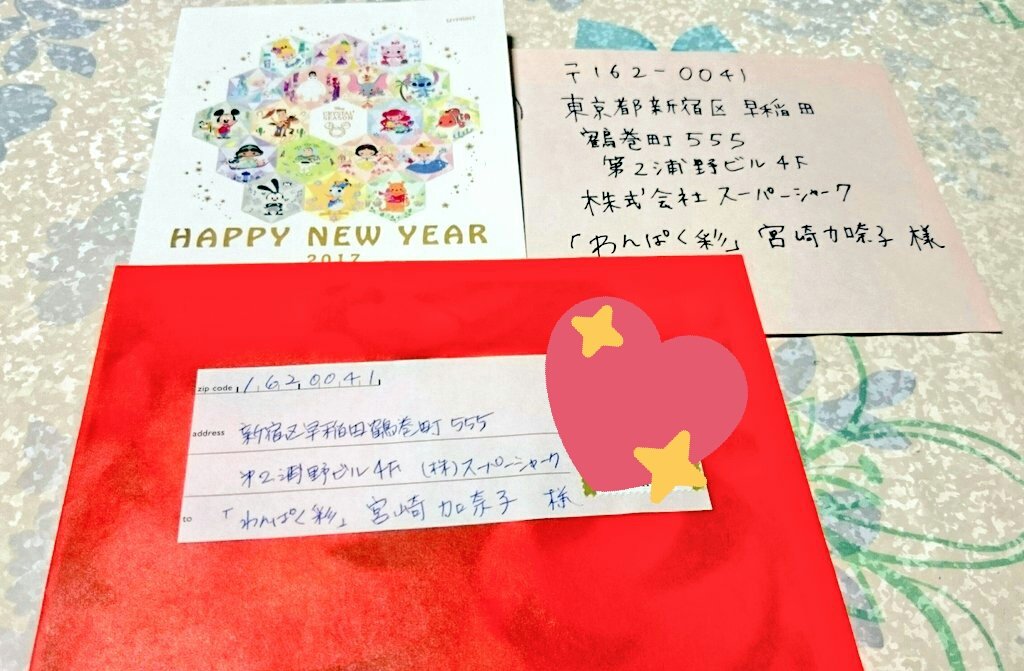 MYPRINT
Disney
CRYSTAL
SEASON
HAPPY NEW YEAR
2017
〒162-0041
東京都新宿区早稲田
鶴巻町555
第2浦野ビル4F
株式会社スーパーシャーク
「わんぱく彩」宮崎加奈子様
zip code 1620041
address 新宿区早稲田鶴巻町555
第2浦野ビル4F (株)スーパーシャーク
to 「わんぱく彩」宮崎加奈子 様